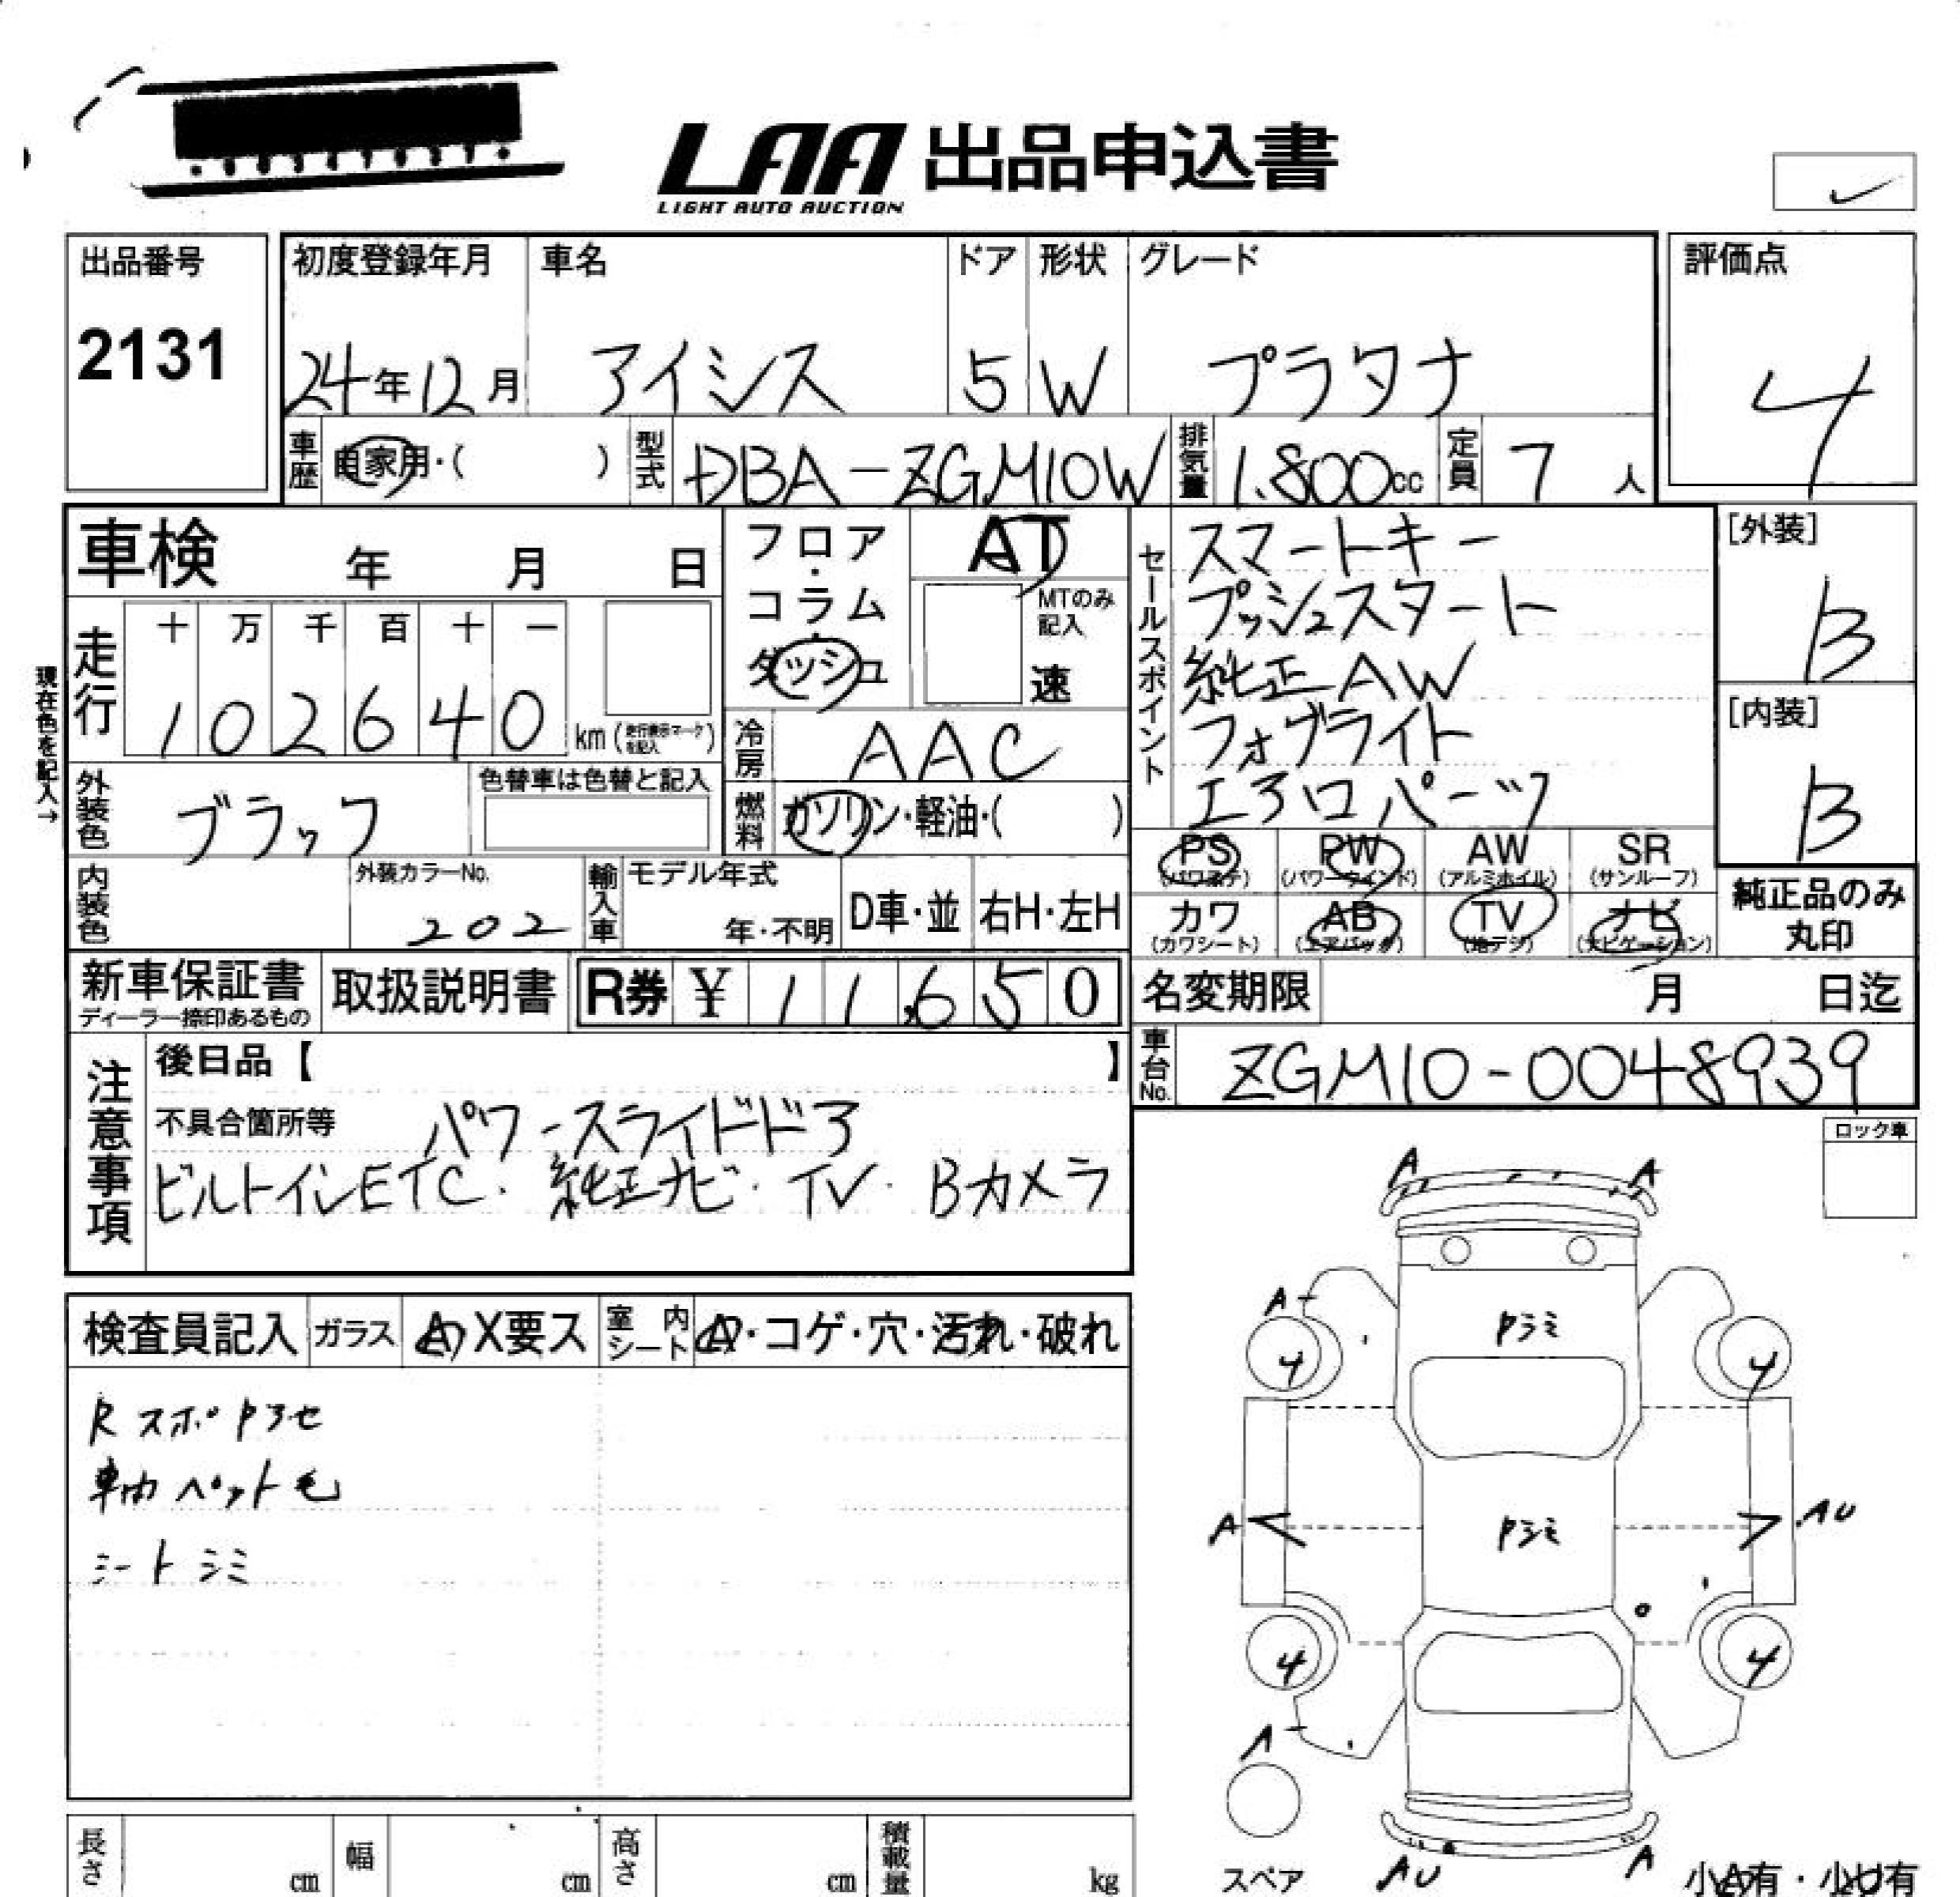 LAA 出品申込書
LIGHT AUTO AUCTION
出品番号
2131
初度登録年月
24年12月
車名
アイシス
ドア
5
形状
W
グレード
プラタナ
評価点
4
車歴
自家用・( )
型式
DBA-ZGM10W
排気量
1.800cc
定員
7 人
車検 年 月 日
走行
十 万 千 百 十 一
1 0 2 6 4 0 km
現在色を記入→
外装色
ブラック
色替車は色替と記入
内装色
外装カラーNo.
202
フロア・
コラム・
ダッシュ
AT
MTのみ
記入
速
冷房
AAC
燃料
ガソリン・軽油・( )
輸入車
モデル年式
年・不明
D車・並
右H・左H
セールスポイント
スマートキー
プッシュスタート
純正AW
フォグライト
エアロパーツ
[外装]
B
[内装]
B
PS PW AW SR
(パワステ) (パワーウインド) (アルミホイル) (サンルーフ)
カワ AB TV ナビ
(カワシート) (エアバック) (地デジ) (ナビゲーション)
純正品のみ
丸印
新車保証書
ディーラー捺印あるもの
取扱説明書
R券 ¥ 11,650
名変期限 月 日迄
車台No.
ZGM10-0048939
注意事項
後日品【 】
不具合箇所等 パワースライドドア
ビルトインETC. 純正ナビ・TV・Bカメラ
ロック車
検査員記入
ガラス
A X要ス
室内
シート
A・コゲ・穴・汚れ・破れ
RスポPアセ
車内ペット毛
シートシミ
A A
A
Pシミ
4 4
A
Pシミ
AU
4 4
A
スペア
AU
A
小A有・小U有
長さ cm
幅 cm
高さ cm
積載量 kg